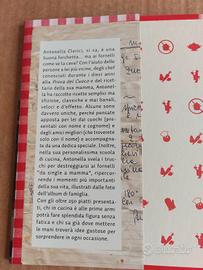 Antonella Clerici, si sa, è una
buona forchetta... ma ai fornelli
come se la cava? Con l'aiuto delle
persone a lei più vicine, degli chef
conosciuti durante i dieci anni
alla Prova del Cuoco e del ricet-
tario della sua mamma, Antonel-
la ha raccolto ricette semplici ma
sfiziose, classiche e mai banali,
veloci e d'effetto. Alcune sono
davvero uniche, perché pensate
apposta per lei dai cuochi (pre-
senti con nome e cognome) e
dagli amici migliori (che troverete
solo con il nome) e accompagna-
te da una dedica speciale. Inoltre,
nella sua personalissima scuola
di cucina, Antonella svela i truc-
chi per destreggiarsi ai fornelli
"da single a mamma", riperco-
rendo i momenti più importanti
della sua vita, illustrati dalle foto
dell'album di famiglia.
Con gli oltre 250 piatti presenti-
ti, chi in cucina è alle prime armi
potrà fare splendida figura senza
fatica e chi sa già dove mettere
le mani troverà idee gustose per
sorprendere in ogni occasione.
subito